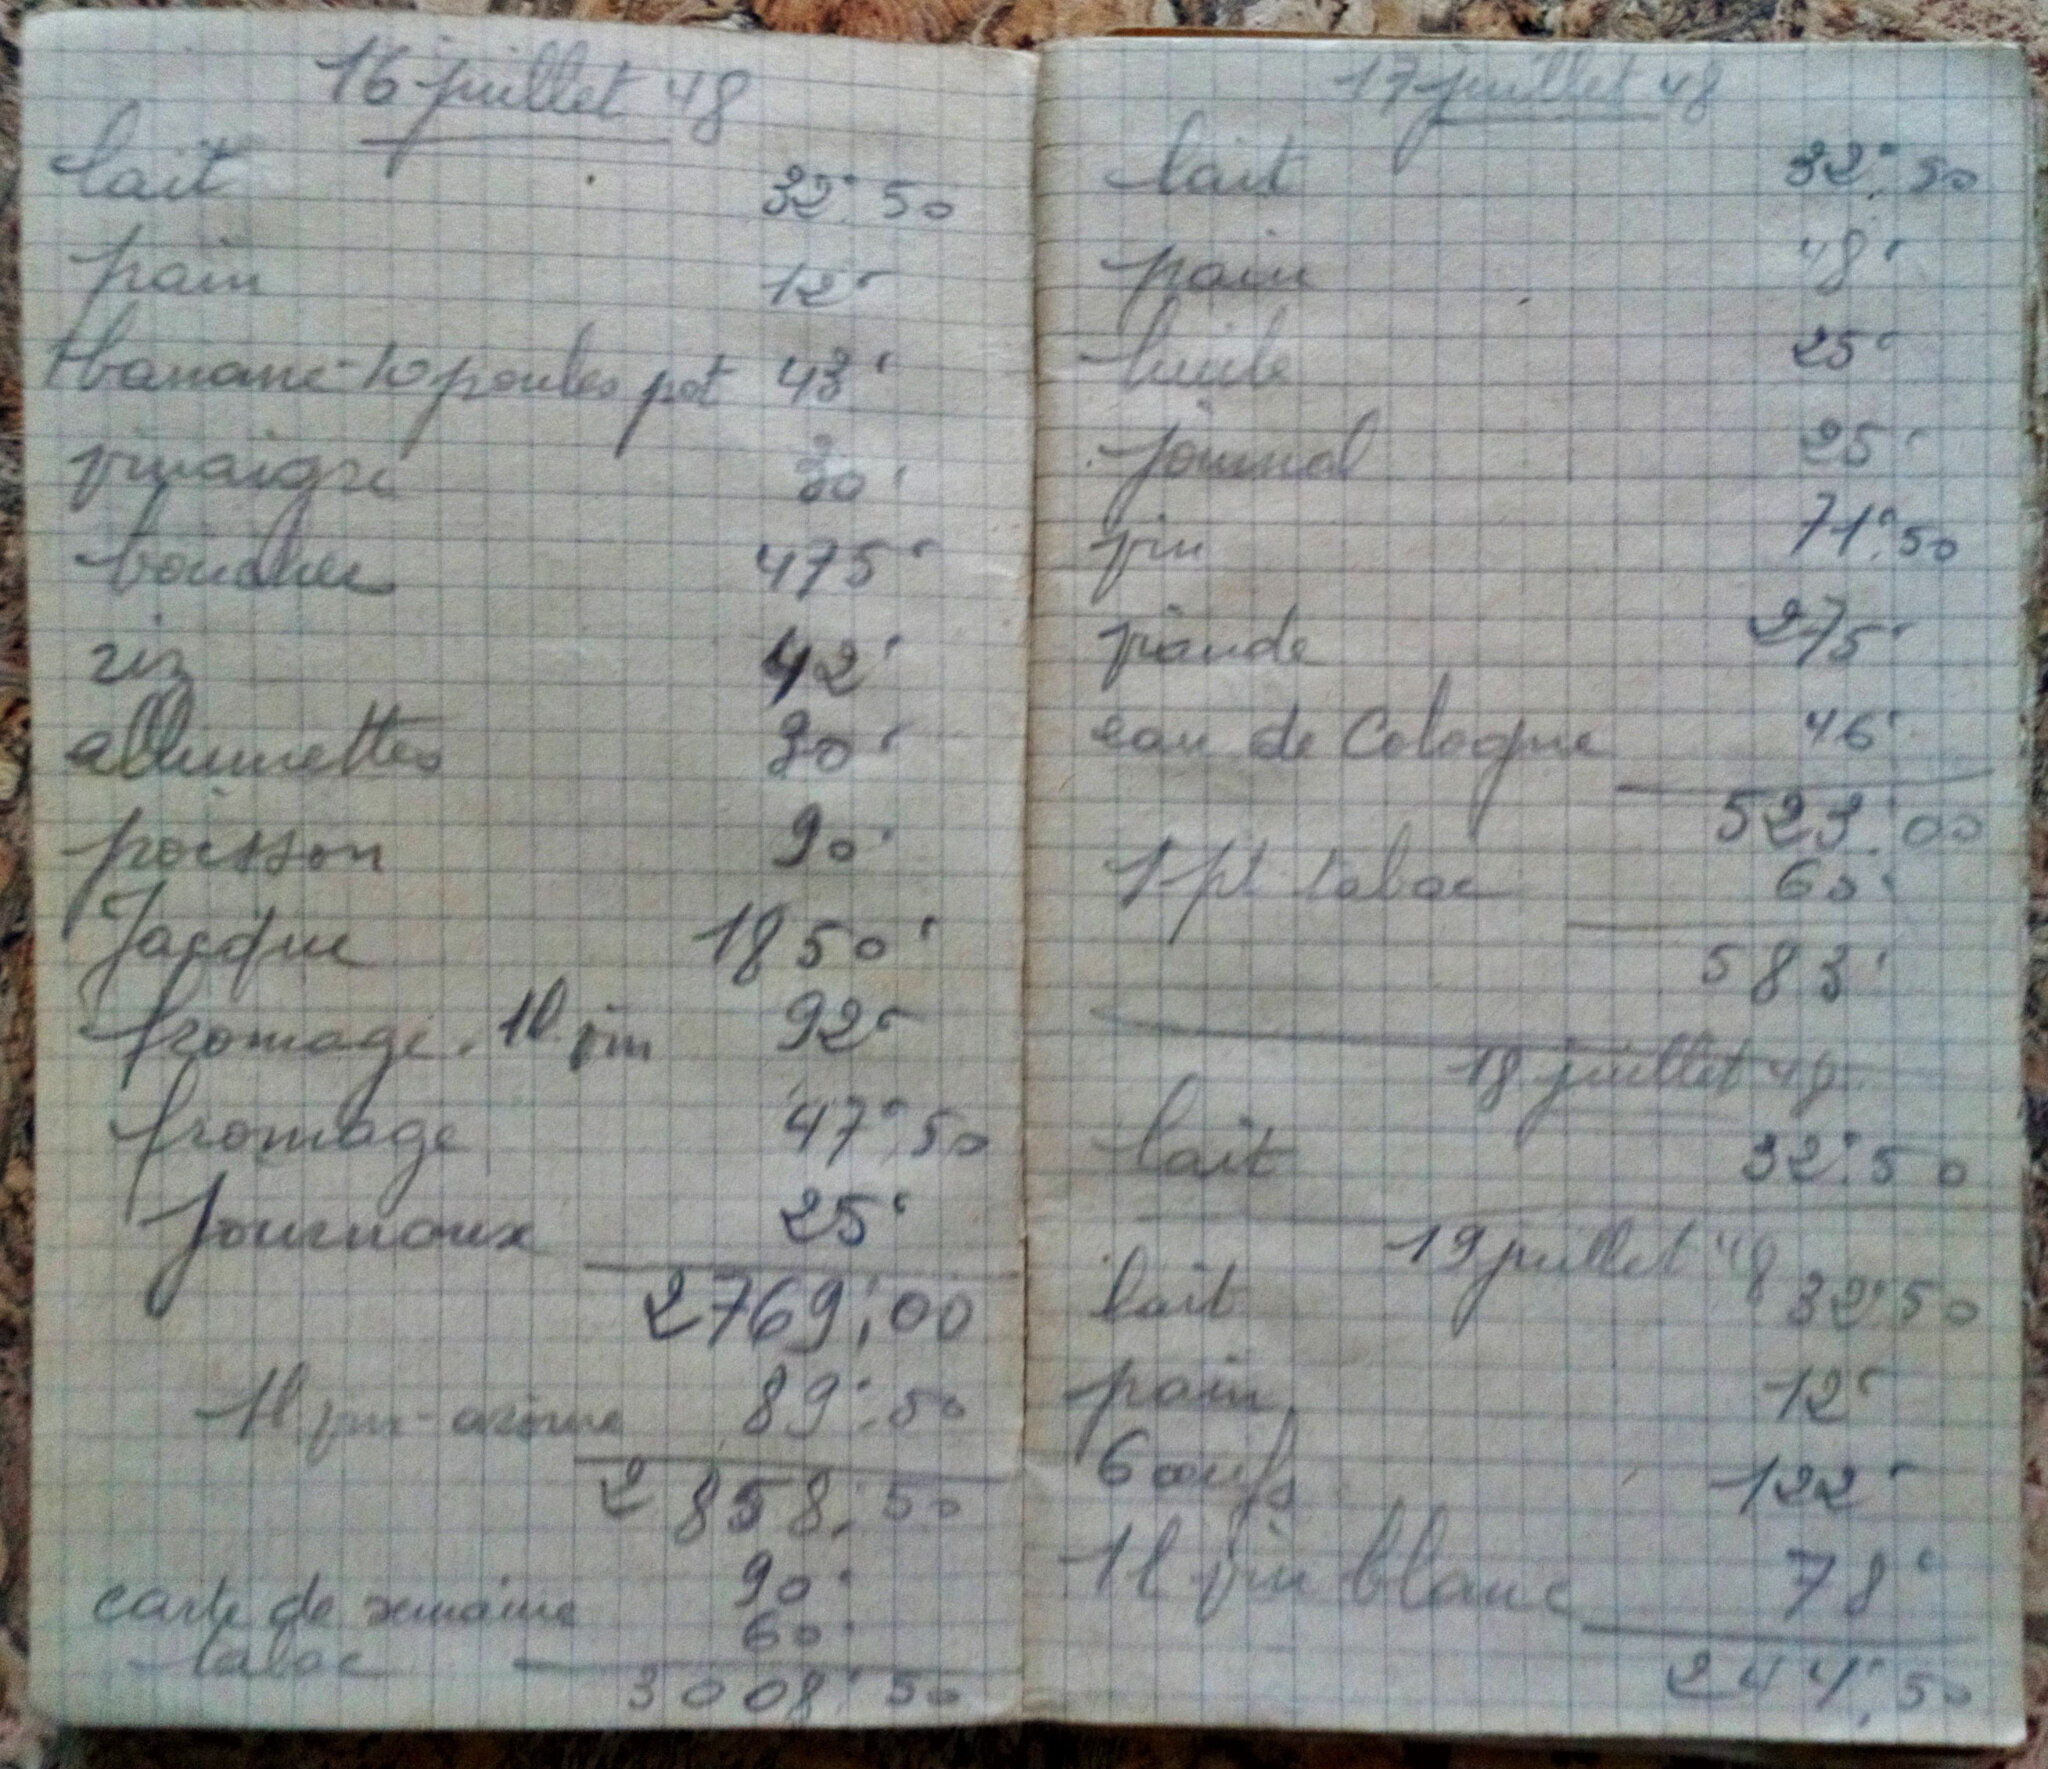 16 juillet 48
lait 32.50
pain 12
banane - 10 poules pot 43
vinaigre 30
boucher 475
riz 42
allumettes 30
poisson 90
Jacque 1850
fromage. 1l. vin 92
fromage 47.50
journaux 25
2769.00
1l. vin - 89.50
2858.50
carte de semaine 90
tabac 60
3008.50
17 juillet 48
lait 32.50
pain 48
huile 25
journal 25
vin 71.50
viande 275
eau de Cologne 46
523.00
1 pt. tabac 60
583
18 juillet 48
lait 32.50
19 juillet 48
lait 32.50
pain 12
6 oeufs 122
1l. vin blanc 78
244.50